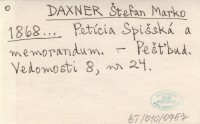 DAXNER Štefan Marko
1868... Petícia Spišská a
memorandum. — Pešťbud.
Vedomosti 8, nr 24.
BT/010/0957